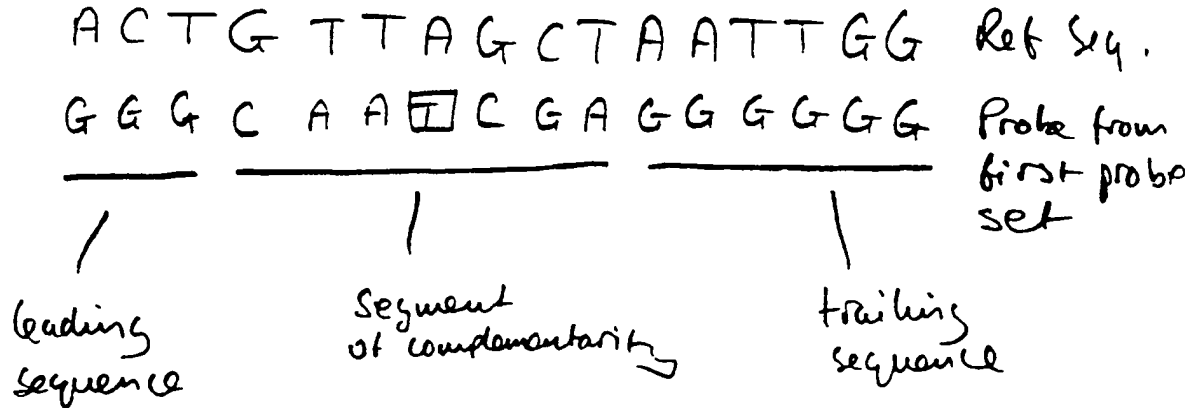 A C T G T T A G C T A A T T G G Ref Seq.
G G G C A A T C G A G G G G G G Probe from
first probe
set
leading segment trailing
sequence of complementarity sequence